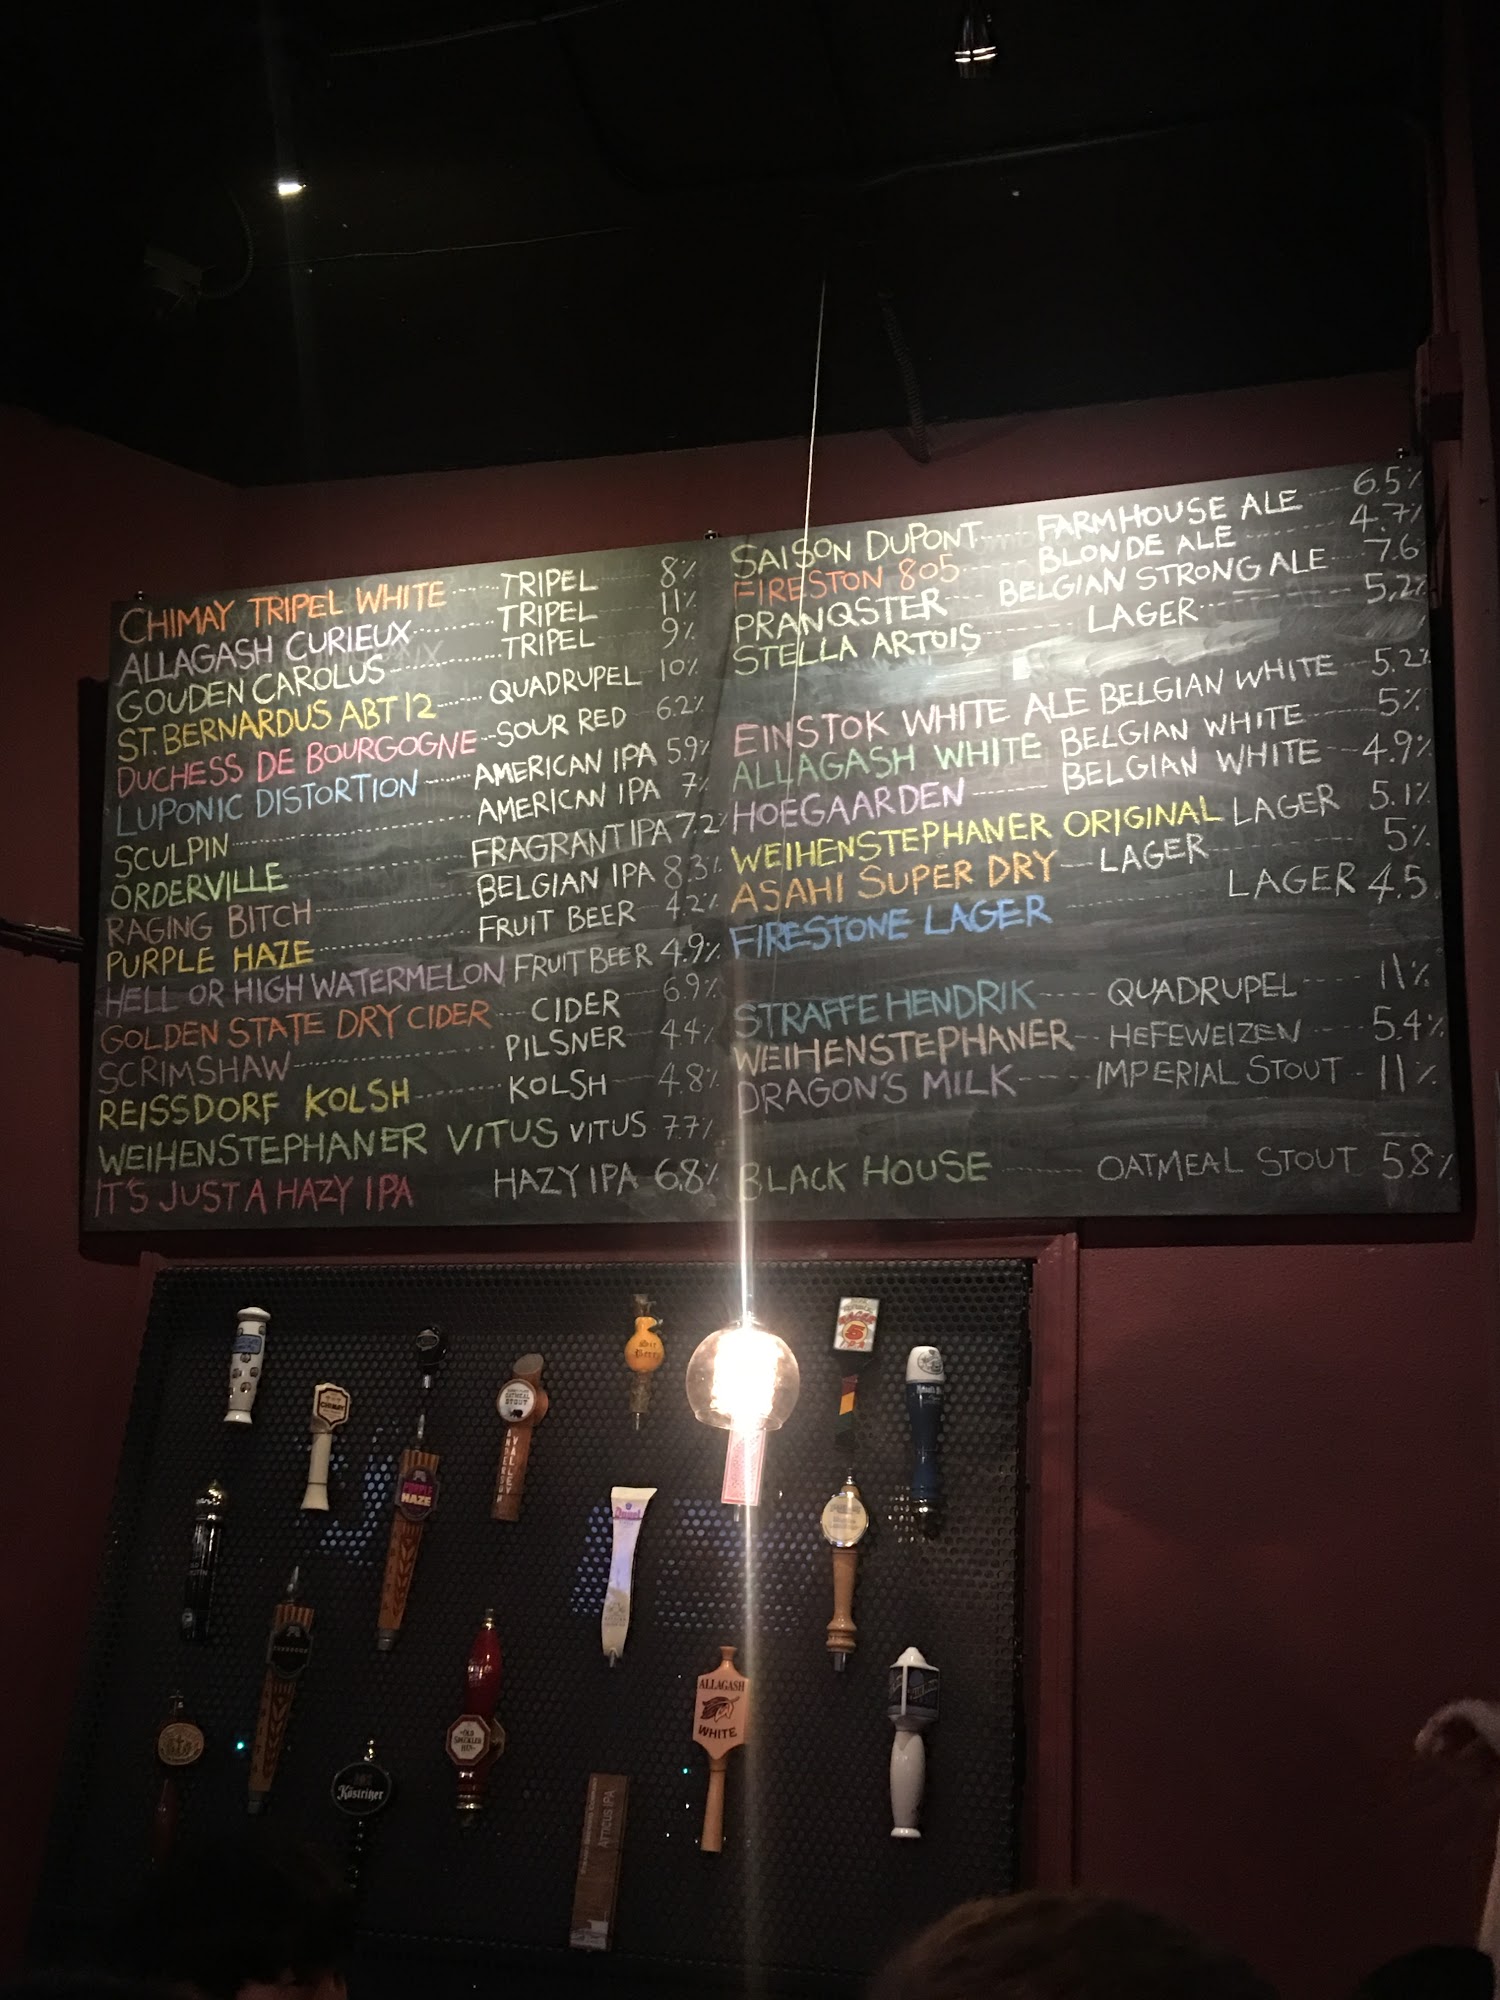 CHIMAY TRIPEL WHITE ...... TRIPEL ...... 8%
ALLAGASH CURIEUX ...... TRIPEL ...... 11%
GOUDEN CAROLUS ...... TRIPEL ...... 9%
ST. BERNARDUS ABT 12 ...... QUADRUPEL ...... 10%
DUCHESS DE BOURGOGNE ... SOUR RED ... 6.2%
LUPONIC DISTORTION ...... AMERICAN IPA 5.9%
SCULPIN ...... AMERICAN IPA 7%
ORDERVILLE ...... FRAGRANT IPA 7.2%
RAGING BITCH ...... BELGIAN IPA 8.3%
PURPLE HAZE ...... FRUIT BEER ... 4.2%
HELL OR HIGH WATERMELON FRUIT BEER 4.9%
GOLDEN STATE DRY CIDER ... CIDER ...... 6.9%
SCRIMSHAW ...... PILSNER ... 4.4%
REISSDORF KOLSH ...... KOLSH ...... 4.8%
WEIHENSTEPHANER VITUS VITUS 7.7%
IT'S JUST A HAZY IPA HAZY IPA 6.8%
SAISON DUPONT ...... FARMHOUSE ALE ... 6.5%
FIRESTON 805 ...... BLONDE ALE ...... 4.7%
PRANQSTER ...... BELGIAN STRONG ALE ... 7.6
STELLA ARTOIS ...... LAGER ...... 5.2%
EINSTOK WHITE ALE BELGIAN WHITE ... 5.2%
ALLAGASH WHITE BELGIAN WHITE ...... 5%
HOEGAARDEN ...... BELGIAN WHITE ... 4.9%
WEIHENSTEPHANER ORIGINAL LAGER ... 5.1%
ASAHI SUPER DRY ... LAGER ...... 5%
FIRESTONE LAGER ...... LAGER 4.5
STRAFFE HENDRIK ...... QUADRUPEL ...... 11%
WEIHENSTEPHANER ... HEFEWEIZEN ...... 5.4%
DRAGON'S MILK ...... IMPERIAL STOUT ... 11%
BLACK HOUSE ...... OATMEAL STOUT 5.8%
CHIMAY
PURPLE HAZE
OATMEAL STOUT
ANDERSON VALLEY
5
OLD SPECKLED HEN
Köstritzer
ALLAGASH
WHITE
ATTICUS IPA